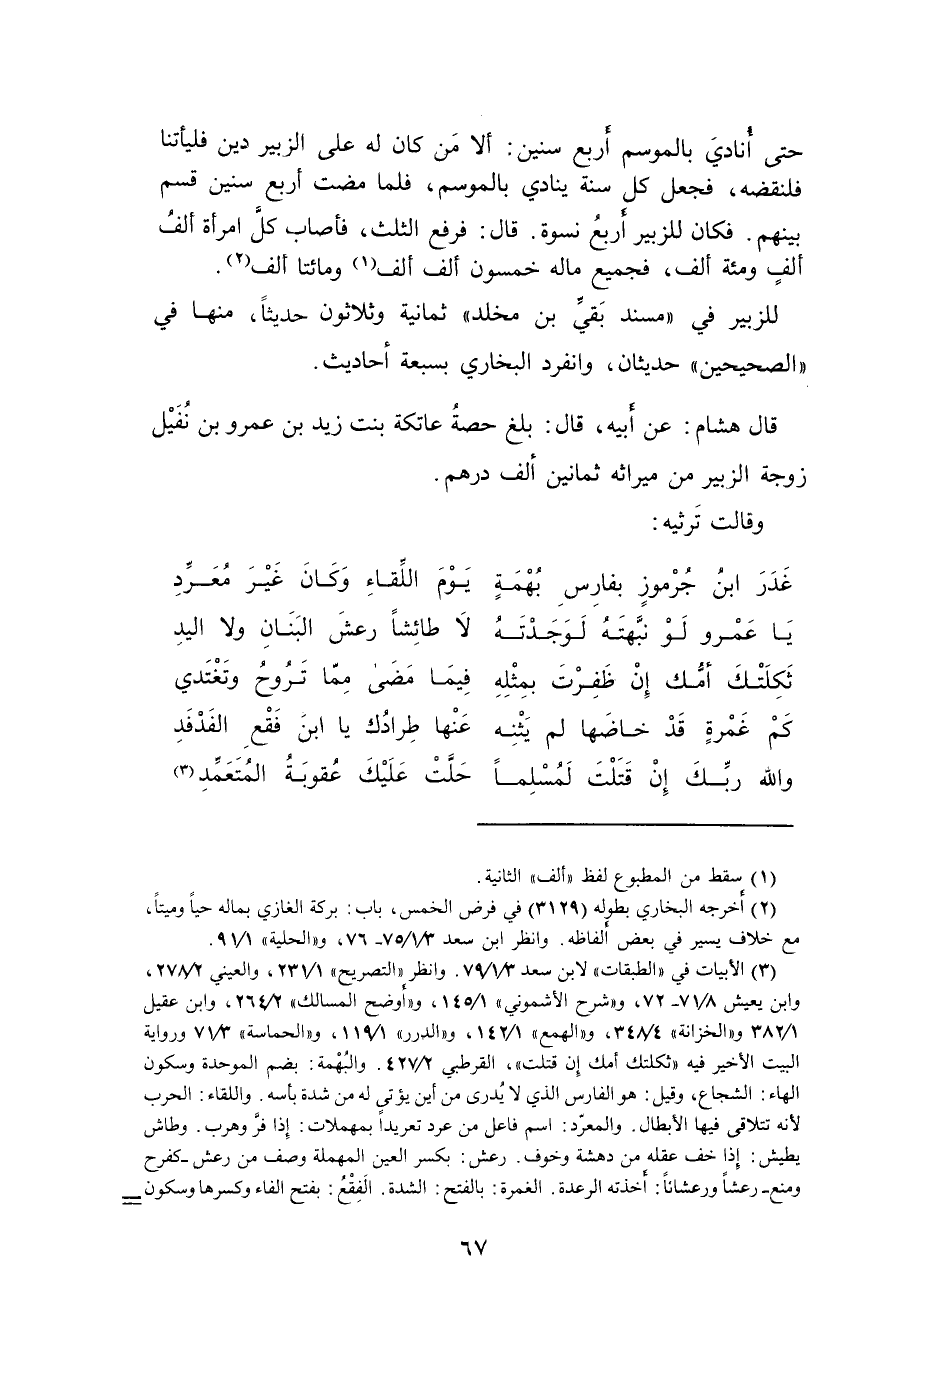 حتى أُناديَ بالموسم أربع سنين: ألا مَن كان له على الزبير دين فليأتنا
فلنقضه، فجعل كل سنة ينادي بالموسم، فلما مضت أربع سنين قسم
بينهم. فكان للزبير أربعُ نسوة. قال: فرفع الثلث، فأصاب كلَّ امرأة ألفُ
ألفٍ ومئة ألف، فجميع ماله خمسون ألف ألف(١) ومائتا ألف(٢).
للزبير في «مسند بَقيِّ بن مخلد» ثمانية وثلاثون حديثاً، منها في
«الصحيحين» حديثان، وانفرد البخاري بسبعة أحاديث.
قال هشام: عن أبيه، قال: بلغ حصةُ عاتكة بنت زيد بن عمرو بن نُفَيْل
زوجة الزبير من ميراثه ثمانين ألف درهم.
وقالت تَرثيه:
غَدَرَ ابنُ جُرْموزٍ بفارسِ بُهْمَةٍ يَوْمَ اللِّقاءِ وَكَانَ غَيْرَ مُعَرِّدِ
يَا عَمْرو لَوْ نبَّهتَهُ لَوَجَدْتَهُ لَا طائِشاً رعشَ البَنَانِ ولا اليدِ
ثَكِلَتْكَ أمُّك إنْ ظَفِرْتَ بمِثْلِهِ فِيمَا مَضَى مِمّا تَروحُ وتَغْتَدي
كَمْ غَمْرةٍ قَدْ خاضَها لم يَثْنِه عَنْها طِرادُك يا ابنَ فَقْعِ الفَدْفَدِ
والله ربِّكَ إنْ قَتَلْتَ لَمُسْلِماً حَلَّتْ عَلَيْكَ عُقوبَةُ المُتَعَمِّدِ(٣)
(١) سقط من المطبوع لفظ «ألف» الثانية.
(٢) أخرجه البخاري بطوله (٣١٢٩) في فرض الخمس، باب: بركة الغازي بماله حياً وميتاً،
مع خلاف يسير في بعض ألفاظه. وانظر ابن سعد ٧٥/١/٣ـ ٧٦، و«الحلية» ٩١/١.
(٣) الأبيات في «الطبقات» لابن سعد ٧٩/١/٣. وانظر «التصريح» ٢٣١/١، والعيني ٢٧٨/٢،
وابن يعيش ٧١/٨ـ ٧٢، و«شرح الأشموني» ١٤٥/١، و«أوضح المسالك» ٢٦٤/٢، وابن عقيل
٣٨٢/١ و«الخزانة» ٣٤٨/٤، و«الهمع» ١٤٢/١، و«الدرر» ١١٩/١، و«الحماسة» ٧١/٣ ورواية
البيت الأخير فيه «ثكلتك أمك إن قتلت»، القرطبي ٤٢٧/٢. والبُهْمة: بضم الموحدة وسكون
الهاء: الشجاع، وقيل: هو الفارس الذي لا يُدرى من أين يؤتى له من شدة بأسه. واللقاء: الحرب
لأنه تتلاقى فيها الأبطال. والمعرّد: اسم فاعل من عرد تعريداً بمهملات: إذا فرَّ وهرب. وطاش
يطيش: إذا خف عقله من دهشة وخوف. رعش: بكسر العين المهملة وصف من رعش ـكفرح
ومنع ـ رعشاً ورعشاناً: أخذته الرعدة. الغمرة: بالفتح: الشدة. الفَِقْعُ: بفتح الفاء وكسرها وسكون =
٦٧